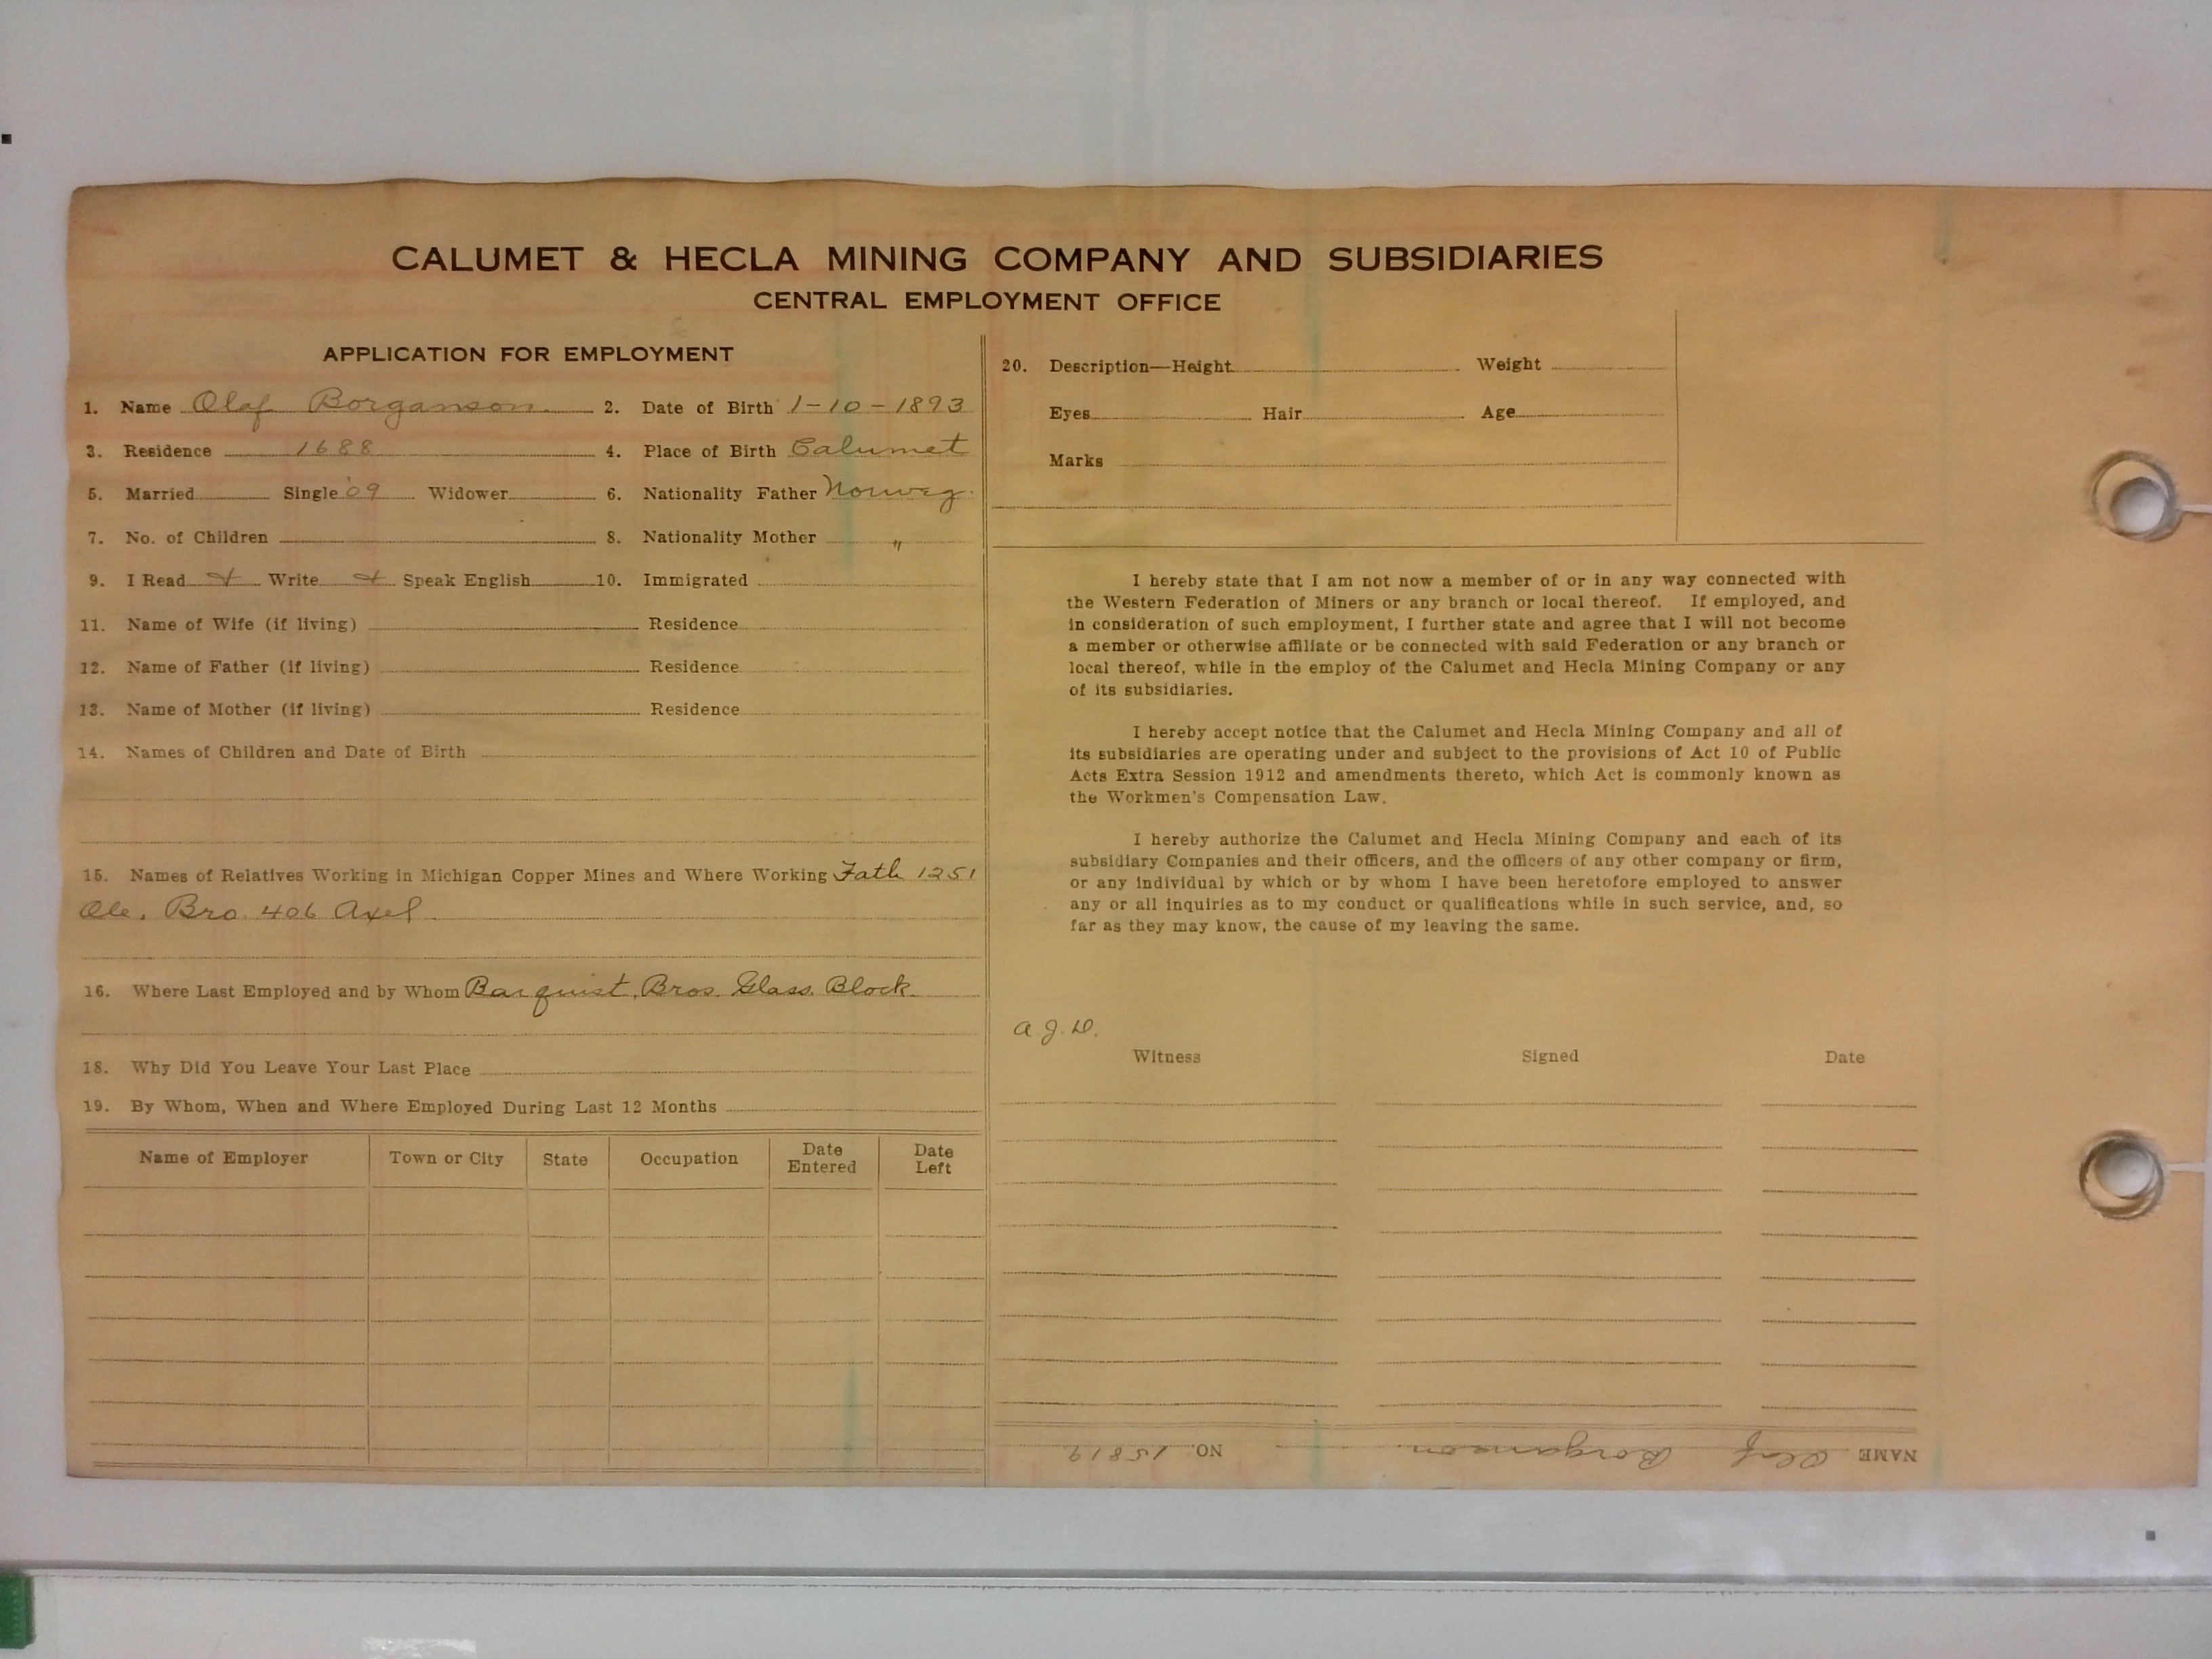 CALUMET & HECLA MINING COMPANY AND SUBSIDIARIES
CENTRAL EMPLOYMENT OFFICE
APPLICATION FOR EMPLOYMENT
1. Name Olaf Borganson 2. Date of Birth 1-10-1893
3. Residence 1688 4. Place of Birth Calumet
5. Married Single '09 Widower 6. Nationality Father Norweg.
7. No. of Children 8. Nationality Mother "
9. I Read Write Speak English 10. Immigrated
11. Name of Wife (if living) Residence
12. Name of Father (if living) Residence
13. Name of Mother (if living) Residence
14. Names of Children and Date of Birth
15. Names of Relatives Working in Michigan Copper Mines and Where Working Fath 1251
Ole. Bro. 406 Axel
16. Where Last Employed and by Whom Barquist, Bros. Glass. Block.
18. Why Did You Leave Your Last Place
19. By Whom, When and Where Employed During Last 12 Months
Name of Employer Town or City State Occupation Date Entered Date Left
20. Description—Height Weight
Eyes Hair Age
Marks
I hereby state that I am not now a member of or in any way connected with
the Western Federation of Miners or any branch or local thereof. If employed, and
in consideration of such employment, I further state and agree that I will not become
a member or otherwise affiliate or be connected with said Federation or any branch or
local thereof, while in the employ of the Calumet and Hecla Mining Company or any
of its subsidiaries.
I hereby accept notice that the Calumet and Hecla Mining Company and all of
its subsidiaries are operating under and subject to the provisions of Act 10 of Public
Acts Extra Session 1912 and amendments thereto, which Act is commonly known as
the Workmen's Compensation Law.
I hereby authorize the Calumet and Hecla Mining Company and each of its
subsidiary Companies and their officers, and the officers of any other company or firm,
or any individual by which or by whom I have been heretofore employed to answer
any or all inquiries as to my conduct or qualifications while in such service, and, so
far as they may know, the cause of my leaving the same.
a.J.D.
Witness Signed Date
NAME Olaf Borganson NO. 15819